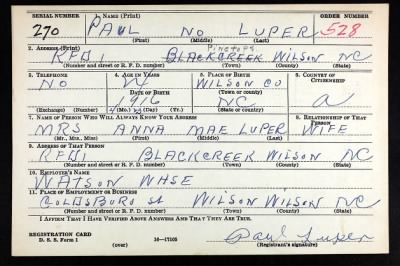 SERIAL NUMBER 1. NAME (Print) ORDER NUMBER
270 PAUL NO LUPER 528
(First) (Middle) (Last)
2. ADDRESS (Print)
Pinetops
RFD 1 BLACKCREEK WILSON NC
(Number and street or R. F. D. number) (Town) (County) (State)
3. TELEPHONE 4. AGE IN YEARS 5. PLACE OF BIRTH 6. COUNTRY OF CITIZENSHIP
NO WILSON CO
DATE OF BIRTH (Town or county)
1916 NC
(Exchange) (Number) (Mo.) (Day) (Yr.) (State or country)
7. NAME OF PERSON WHO WILL ALWAYS KNOW YOUR ADDRESS 8. RELATIONSHIP OF THAT PERSON
MRS ANNA MAE LUPER WIFE
(Mr., Mrs., Miss) (First) (Middle) (Last)
9. ADDRESS OF THAT PERSON
RFD 1 BLACKCREEK WILSON NC
(Number and street or R. F. D. number) (Town) (County) (State)
10. EMPLOYER'S NAME
WATSON WHSE
11. PLACE OF EMPLOYMENT OR BUSINESS
GOLDSBORO ST WILSON WILSON NC
(Number and street or R. F. D. number) (Town) (County) (State)
I AFFIRM THAT I HAVE VERIFIED ABOVE ANSWERS AND THAT THEY ARE TRUE.
REGISTRATION CARD
D. S. S. Form 1 (over) 16—17105
Paul Luper
(Registrant's signature)